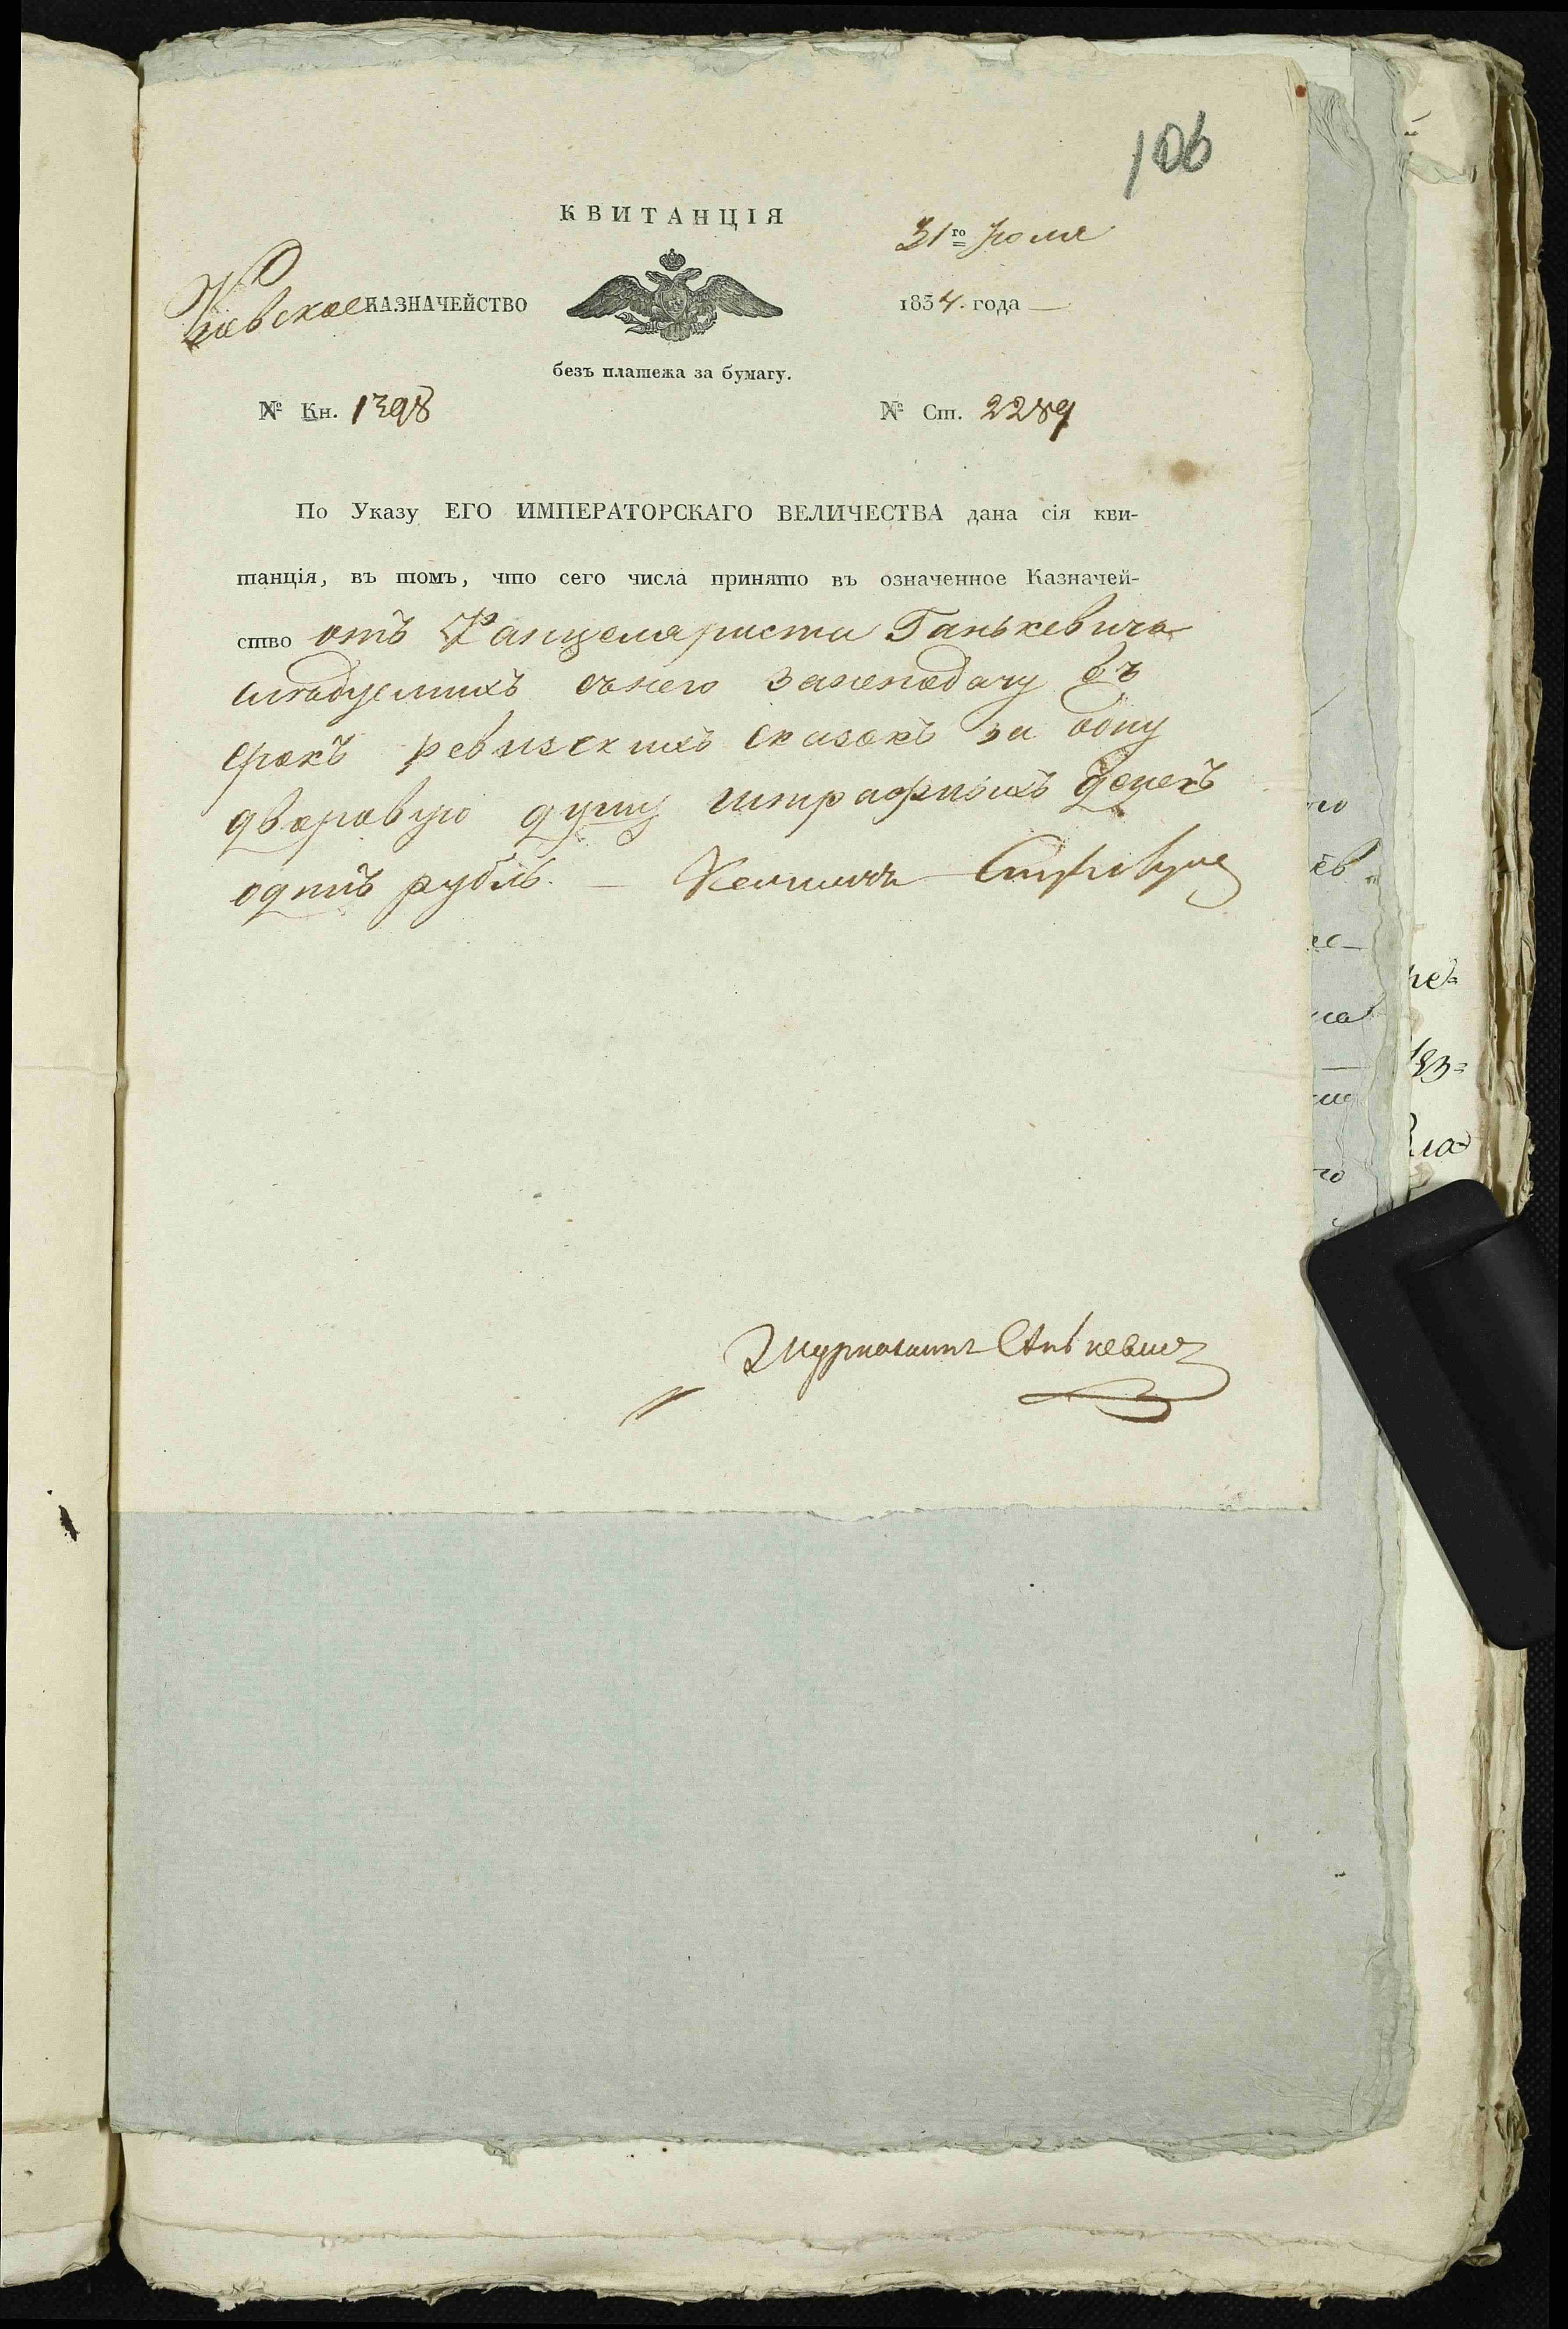 106
КВИТАНЦІЯ
31го Іюля
Кіевское КАЗНАЧЕЙСТВО
1834. года —
безъ платежа за бумагу.
№ Кн. 1398
№ Ст. 2289
По Указу ЕГО ИМПЕРАТОРСКАГО ВЕЛИЧЕСТВА дана сія кви-
танція, въ томъ, что сего числа принято въ означенное Казначей-
ство отъ Канцеляриста Ганькевича
слѣдуемыхъ съ него за неподачу въ
срокъ ревизскихъ сказокъ за одну
дворовую душу штрафныхъ денегъ
одинъ рубль. —
Журналистъ